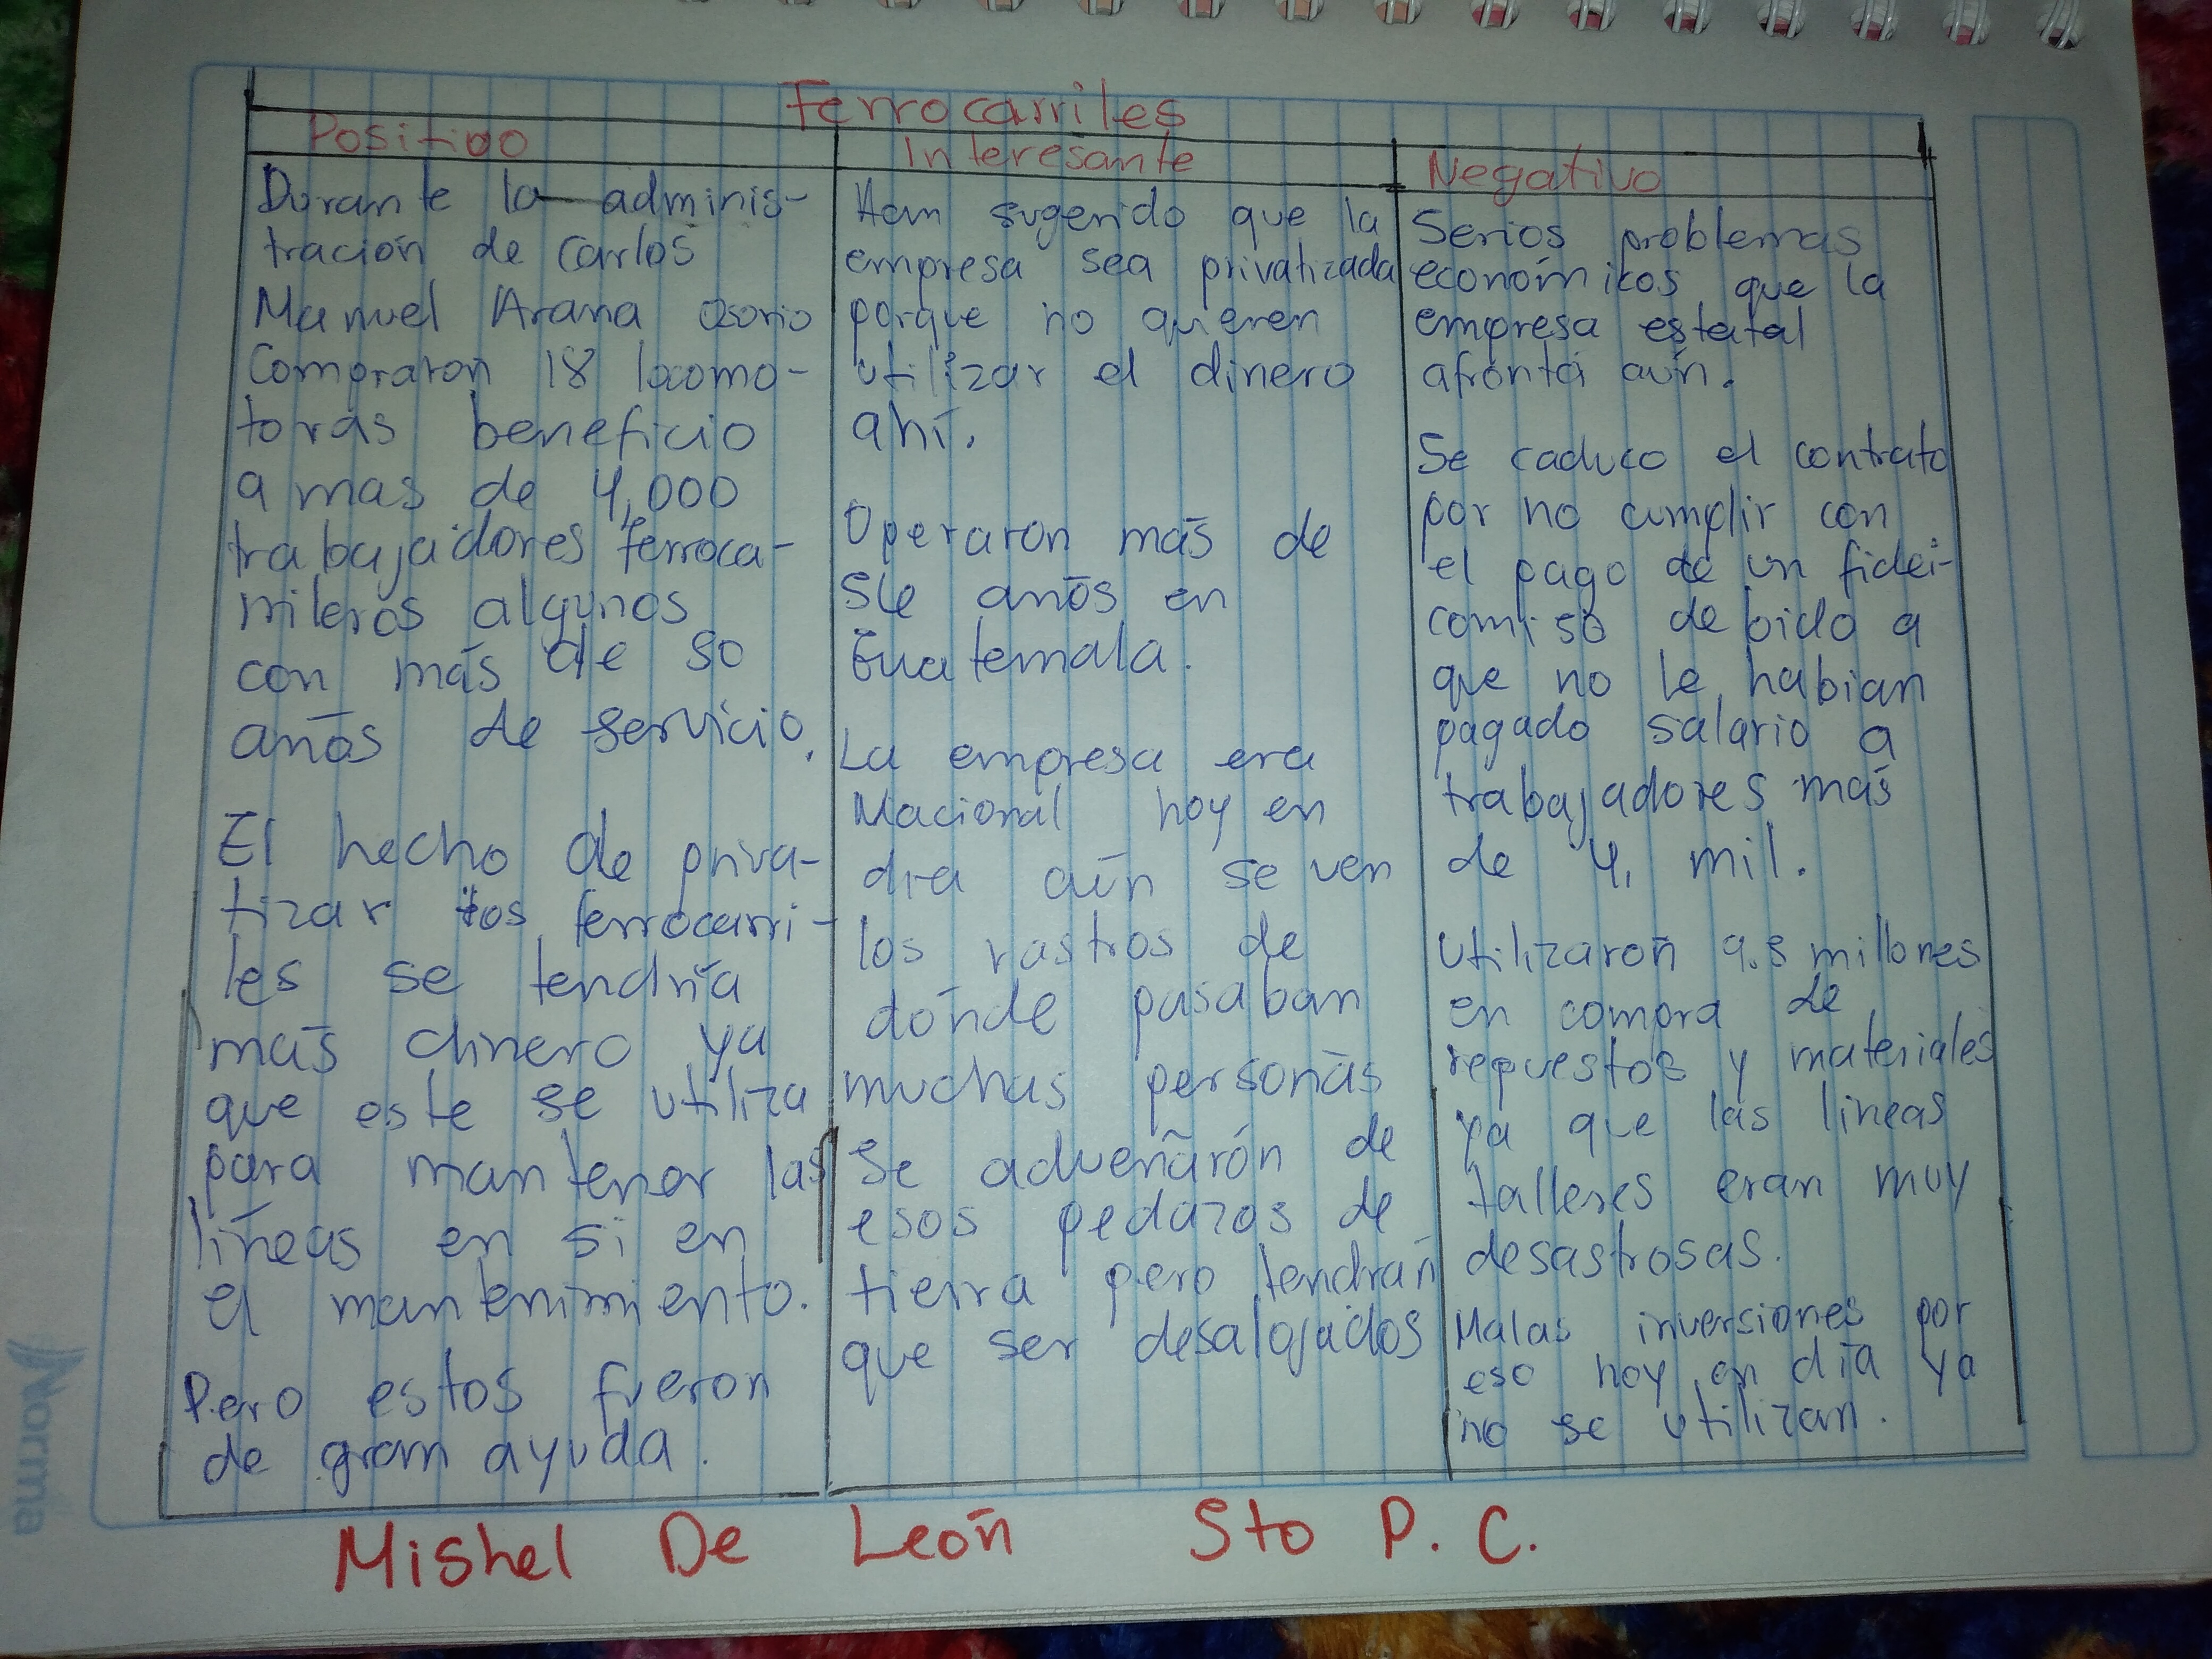 Ferrocarriles
Positivo
Durante la adminis-
tración de Carlos
Manuel Arana Osorio
Compraron 18 locomo-
toras beneficio
a mas de 4,000
trabajadores ferroca-
rrileros algunos
con más de 50
años de servicio.
El hecho de priva-
tizar los ferrocarri-
les se tendría
más dinero ya
que este se utiliza
para mantener las
líneas en si en
el mantenimiento.
Pero estos fueron
de gran ayuda.
Interesante
Han sugerido que la
empresa sea privatizada
porque no quieren
utilizar el dinero
ahí.
Operaron más de
años en
Guatemala.
La empresa era
Nacional hoy en
día aún se ven
los rastros de
dónde pasaban
muchas personas
Se adueñarón de
esos pedazos de
tierra pero tendrán
que ser desalojados
Negativo
Serios problemas
económicos que la
empresa estatal
afronta aún.
Se caduco el contrato
por no cumplir con
el pago de un fidei-
comiso debido a
que no le habian
pagado salario a
trabajadores más
de 4, mil.
Utilizarón 9.5 millones
en compra de
repuestos y materiales
ya que las lineas
talleres eran muy
desastrosas.
Malas inversiones por
eso hoy en día ya
no se utilizan.
Mishel De León 5to P. C.
Norma